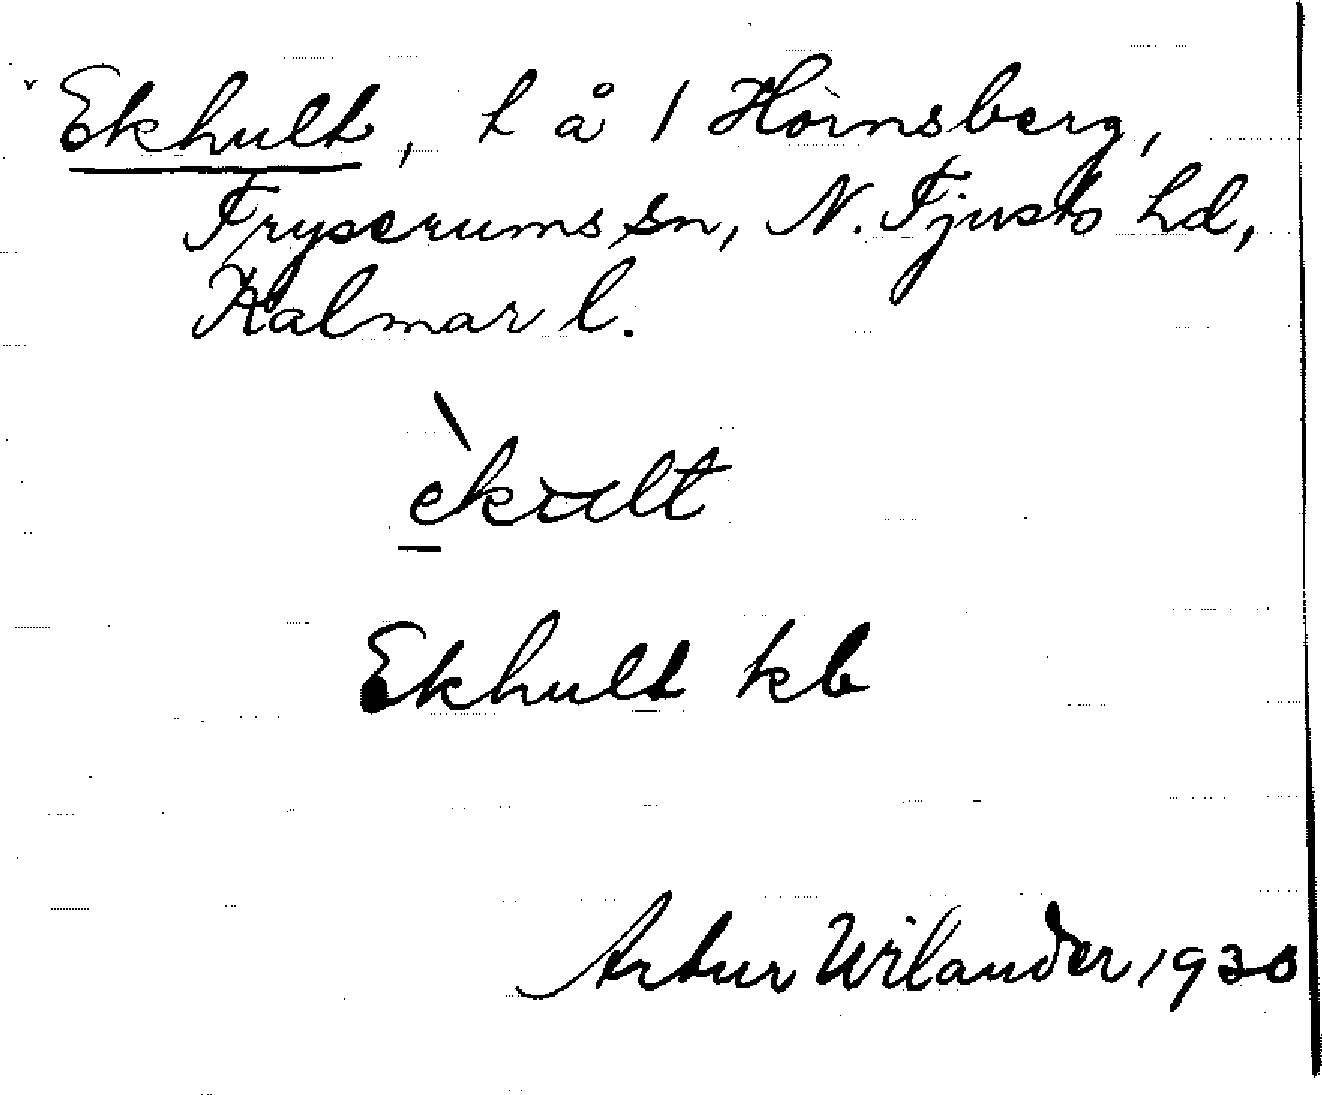 Ekhult, t å 1 Hornsberg,
Fryserums sn, N. Tjusts hd,
Kalmar l.
èkult
Ekhult kb
Artur Wilander 1930